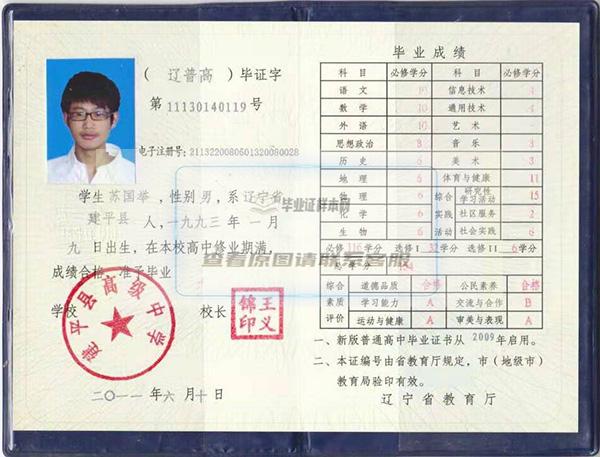 （ 辽普高 ）毕证字
第 11130140119 号
电子注册号: 2113220080501320080028
学生 苏国举 , 性别 男 , 系 辽宁省
建平县 人, 一九九三 年 一 月
九 日出生, 在本校高中修业期满,
成绩合格, 准予毕业
学校
校长
建平县高级中学
王义锦印
二〇一一 年 六 月 十 日
毕业成绩
科目 必修学分 科目 必修学分
语文 10 信息技术 4
数学 10 通用技术 4
外语 10 艺术
思想政治 8 音乐 3
历史 6 美术 3
地理 6 体育与健康 11
物理 6 综合实践活动 研究性学习活动 15
化学 6 社区服务 2
生物 6 社会实践 6
必修 116 学分 选修I 32 学分 选修II 6 学分
总学分 154
综合素质评价 道德品质 合格 公民素养 合格
学习能力 A 交流与合作 B
运动与健康 A 审美与表现 A
一、新版普通高中毕业证书从 2009 年启用。
二、本证编号由省教育厅规定, 市（地级市）
教育局验印有效。
辽宁省教育厅
毕业证样本网
查看原图请联系客服